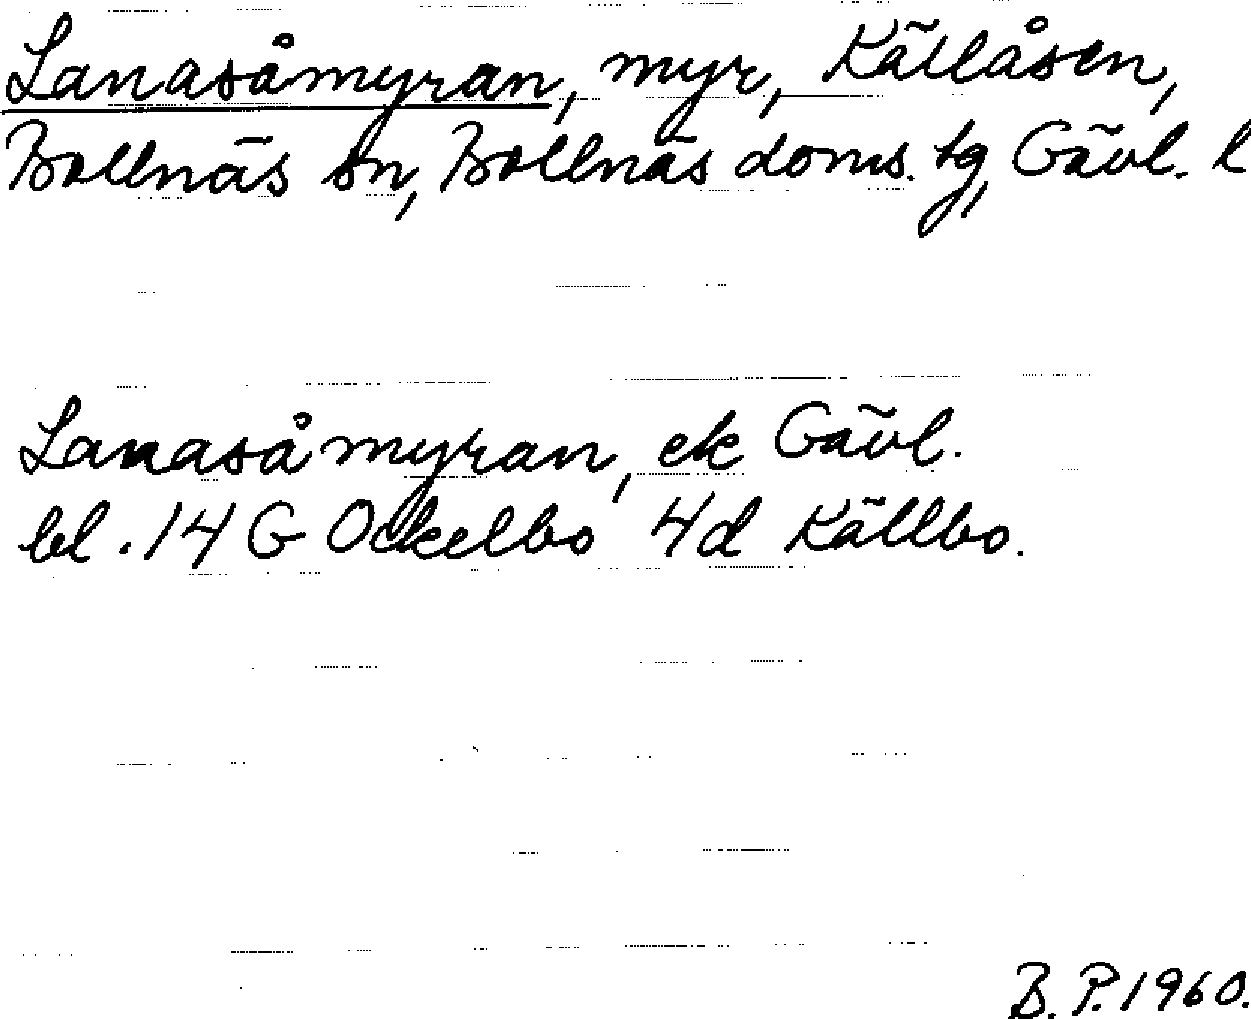 Lanasåmyran, myr, Källåsen,
Bollnäs sn, Bollnäs doms. tg, Gävl. l
Lanasåmyran, ek Gävl.
bl. 14 G Ockelbo 4d Källbo.
B. P. 1960.